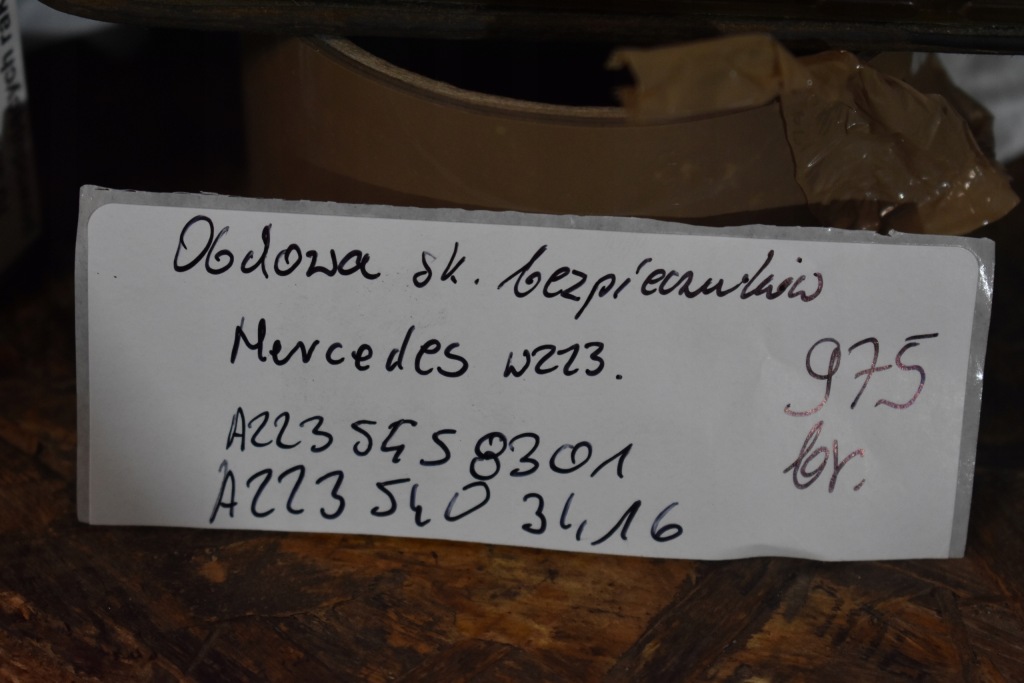 Obdowa sk. bezpieczników
Mercedes w223.
975
br.
A223 545 8301
A223 540 34,16